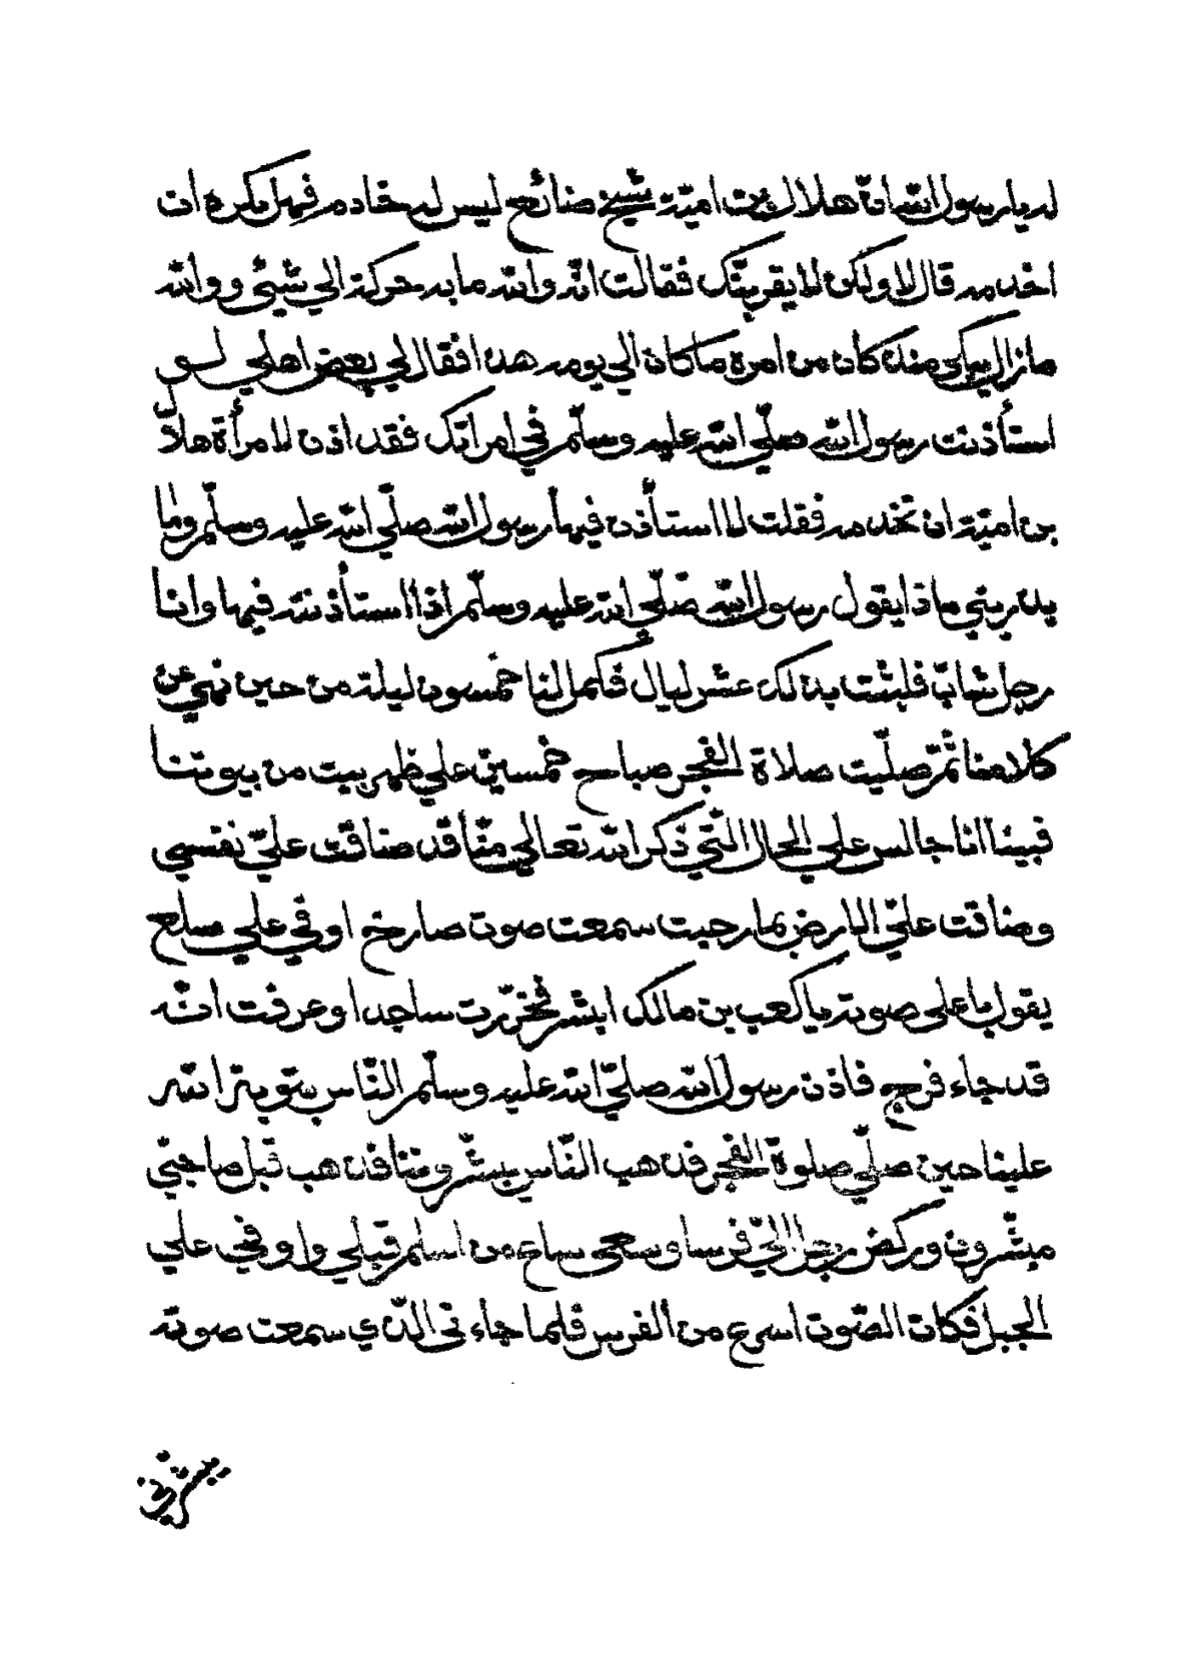 له يا رسول الله ان هلال بن امية شيخ ضائع ليس له خادم فهل تكره ان
اخدمه قال لا ولكن لا يقربنك فقالت انه والله ما به حركة الي شيئ ووالله
ما زال يبكى منذ كان من امره ما كان الي يومه هذا فقال لي بعض اهلي لو
استأذنت رسول الله صلّي الله عليه وسلّم في امراتك فقد اذن لامرأة هلال
بن اميّة ان تخدمه فقلت لا استأذن فيها رسول الله صلّي الله عليه وسلّم وما
يدريني ماذا يقول رسول الله صلّي الله عليه وسلّم اذا استأذنته فيها وانا
رجل شابّ فلبثت بذلك عشر ليال فكمل لنا خمسون ليلة من حين نهي عن
كلامنا ثمّ صلّيت صلاة الفجر صباح خمسين علي ظهر بيت من بيوتنا
فبينا انا جالس علي الحال الّتي ذكر الله تعالي منّا قد ضاقت عليّ نفسي
وضاقت عليّ الارض بما رحبت سمعت صوت صارخ اوفي علي سلع
يقول باعلى صوته يا كعب بن مالك ابشر فخررت ساجدا وعرفت انّه
قد جاء فرج فاذن رسول الله صلّي الله عليه وسلّم النّاس بتوبة الله
علينا حين صلّي صلوة الفجر فذهب النّاس يبشّروننا فذهب قبل صاحبيّ
مبشّرون وركض رجل اليّ فرسا وسعى ساع من اسلم قبلي واوفي علي
الجبل فكان الصّوت اسرع من الفرس فلما جاءني الّذي سمعت صوته
يبشّرني